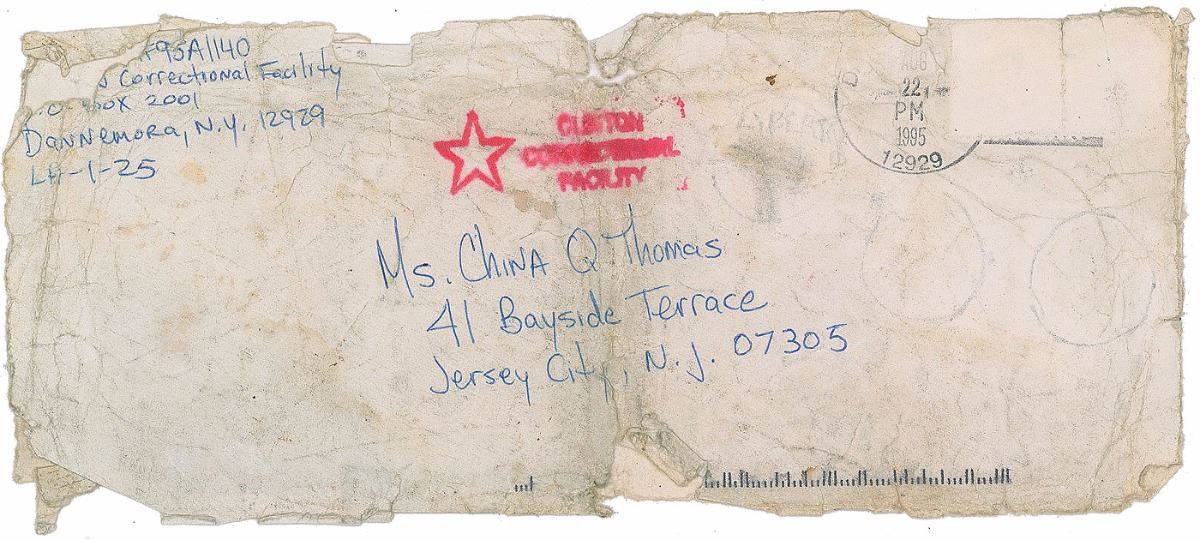 95A1140
Correctional Facility
Box 2001
Dannemora, N.Y. 12929
LH-1-25
CLINTON
CORRECTIONAL
FACILITY
AUG
22
PM
1995
12929
Ms. China Q Thomas
41 Bayside Terrace
Jersey City, N.J. 07305